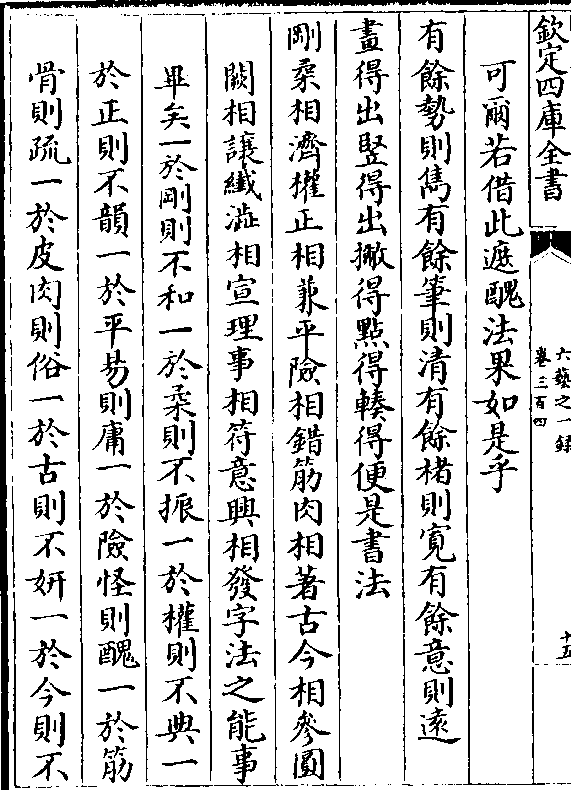 欽定四庫全書
六藝之一録
卷三百四
十五
可爾若借此遮醜法果如是乎
有餘勢則雋有餘筆則清有餘楮則寛有餘意則遠
畫得出竪得出撇得點得輳得便是書法
剛柔相濟權正相兼平險相錯筋肉相著古今相參圓
闕相讓纖澁相宣理事相符意興相發字法之能事
畢矣一於剛則不和一於柔則不振一於權則不典一
於正則不韻一於平易則庸一於險怪則醜一於筋
骨則疏一於皮肉則俗一於古則不妍一於今則不